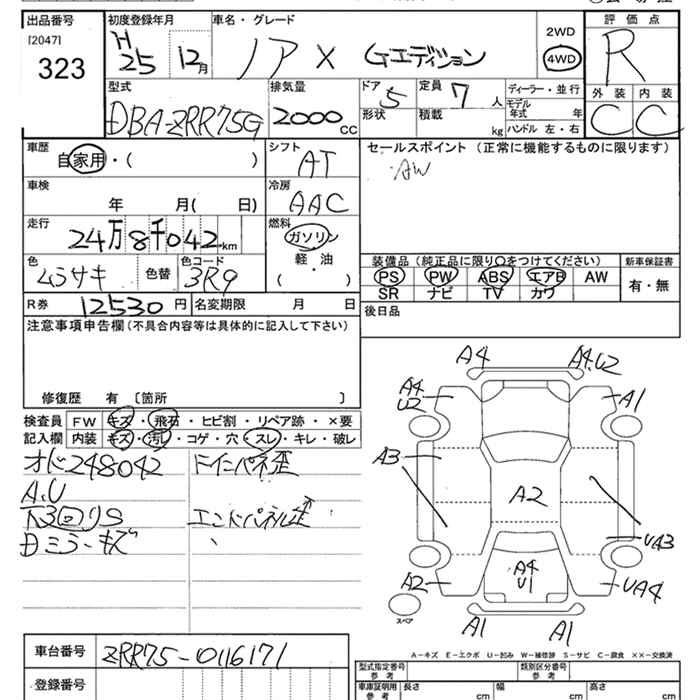 出品番号
[2047]
323
初度登録年月
H
25 12月
車名・グレード
ノア X Gエディション
2WD
4WD
評価点
R
外装 内装
C C
型式
DBA-ZRR75G
排気量
2000cc
ドア 5
形状
定員 7人
積載 kg
ディーラー・並行
モデル年式 年
ハンドル 左・右
車歴
自家用・( )
シフト
AT
セールスポイント (正常に機能するものに限ります)
AW
車検
年 月( 日)
冷房
AAC
走行
24万8千042km
燃料
ガソリン
軽・油
( )
色
ムラサキ
色替
色コード
3R9
装備品 (純正品に限り○をつけてください)
新車保証書
PS PW ABS エアB AW
有・無
SR ナビ TV カワ
R券 12530円
名変期限 月 日
後日品
注意事項申告欄 (不具合内容等は具体的に記入して下さい)
修復歴 有 〔箇所 〕
検査員記入欄
FW キズ・飛石・ヒビ割・リペア跡・×要
内装 キズ・汚レ・コゲ・穴・スレ・キレ・破レ
オド248042
トインパネ歪
A,U
下3回リS
エンドパネル歪
日ミラーキズ
A4
A4.U2
A4
U2
A1
A3
A2
UA3
A4
U1
A2
UA4
スペア
A1
A1
A-キズ E-エクボ U-凹み W-補修跡 S-サビ C-腐食 XX-交換済
車台番号
ZRR75-0116171
登録番号
型式指定番号
参考
類別区分番号
参考
車庫証明用
参考
長さ cm
幅 cm
高さ cm